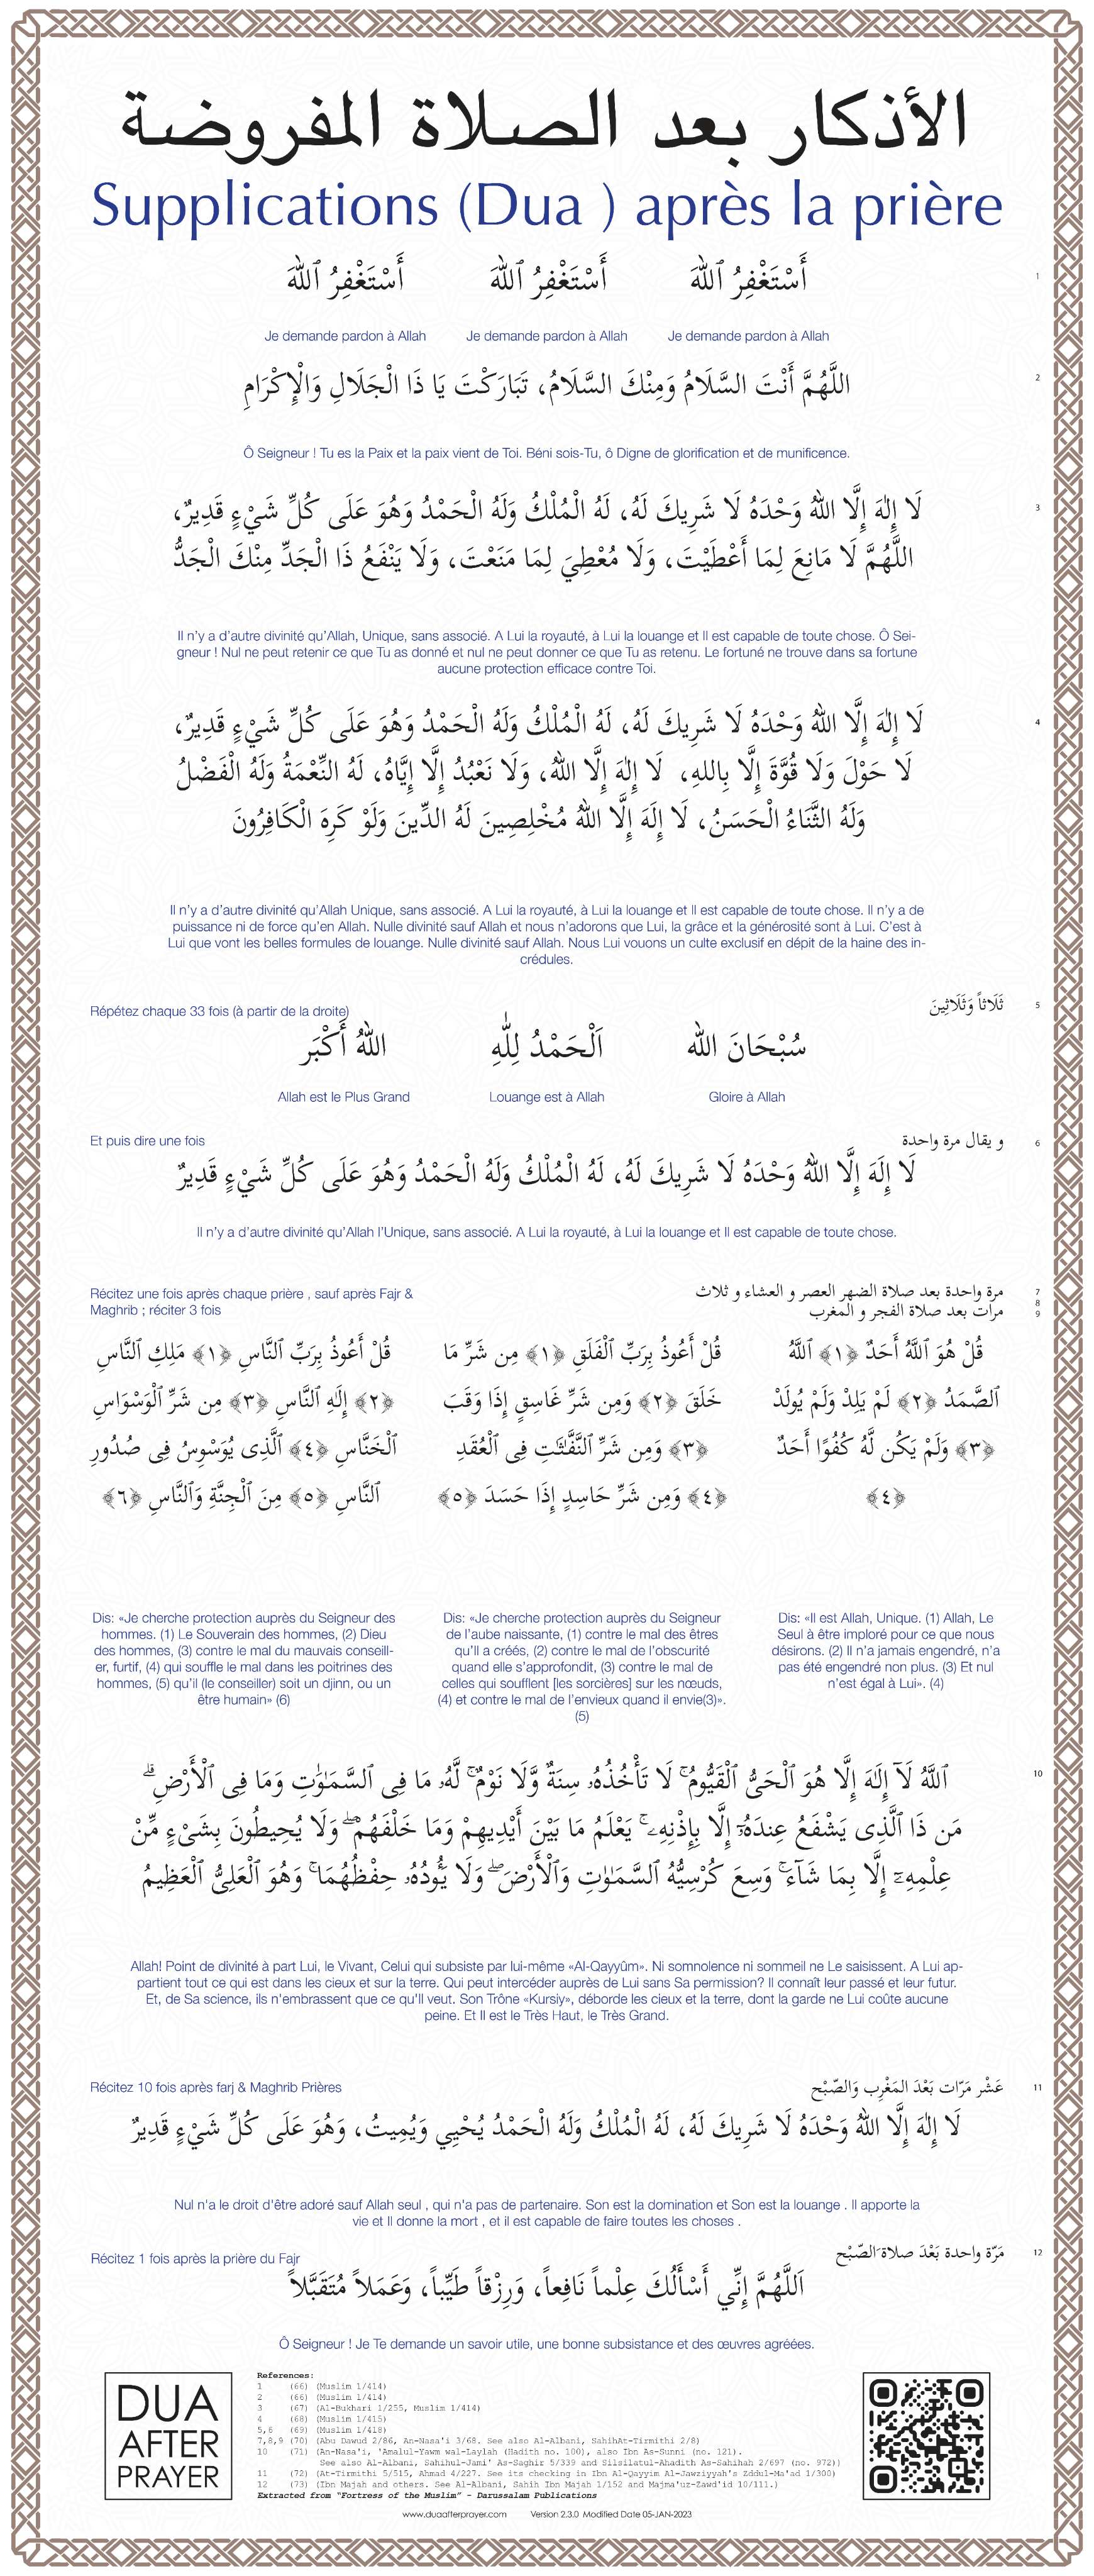 الأذكار بعد الصلاة المفروضة
Supplications (Dua ) après la prière
1
أَسْتَغْفِرُ ٱللهَ أَسْتَغْفِرُ ٱللهَ أَسْتَغْفِرُ ٱللهَ
Je demande pardon à Allah Je demande pardon à Allah Je demande pardon à Allah
2
اللَّهُمَّ أَنْتَ السَّلَامُ وَمِنْكَ السَّلَامُ، تَبَارَكْتَ يَا ذَا الْجَلَالِ وَالْإِكْرَامِ
Ô Seigneur ! Tu es la Paix et la paix vient de Toi. Béni sois-Tu, ô Digne de glorification et de munificence.
3
لَا إِلٰهَ إِلَّا اللهُ وَحْدَهُ لَا شَرِيكَ لَهُ، لَهُ الْمُلْكُ وَلَهُ الْحَمْدُ وَهُوَ عَلَى كُلِّ شَيْءٍ قَدِيرٌ،
اللَّهُمَّ لَا مَانِعَ لِمَا أَعْطَيْتَ، وَلَا مُعْطِيَ لِمَا مَنَعْتَ، وَلَا يَنْفَعُ ذَا الْجَدِّ مِنْكَ الْجَدُّ
Il n'y a d'autre divinité qu'Allah, Unique, sans associé. A Lui la royauté, à Lui la louange et Il est capable de toute chose. Ô Sei-
gneur ! Nul ne peut retenir ce que Tu as donné et nul ne peut donner ce que Tu as retenu. Le fortuné ne trouve dans sa fortune
aucune protection efficace contre Toi.
4
لَا إِلٰهَ إِلَّا اللهُ وَحْدَهُ لَا شَرِيكَ لَهُ، لَهُ الْمُلْكُ وَلَهُ الْحَمْدُ وَهُوَ عَلَى كُلِّ شَيْءٍ قَدِيرٌ،
لَا حَوْلَ وَلَا قُوَّةَ إِلَّا بِاللهِ، لَا إِلٰهَ إِلَّا اللهُ، وَلَا نَعْبُدُ إِلَّا إِيَّاهُ، لَهُ النِّعْمَةُ وَلَهُ الْفَضْلُ
وَلَهُ الثَّنَاءُ الْحَسَنُ، لَا إِلَهَ إِلَّا اللهُ مُخْلِصِينَ لَهُ الدِّينَ وَلَوْ كَرِهَ الْكَافِرُونَ
Il n'y a d'autre divinité qu'Allah Unique, sans associé. A Lui la royauté, à Lui la louange et Il est capable de toute chose. Il n'y a de
puissance ni de force qu'en Allah. Nulle divinité sauf Allah et nous n'adorons que Lui, la grâce et la générosité sont à Lui. C'est à
Lui que vont les belles formules de louange. Nulle divinité sauf Allah. Nous Lui vouons un culte exclusif en dépit de la haine des in-
crédules.
5
ثَلَاثاً وَثَلَاثِينَ
Répétez chaque 33 fois (à partir de la droite)
سُبْحَانَ الله اَلْحَمْدُ لِلّٰهِ اللهُ أَكْبَر
Allah est le Plus Grand Louange est à Allah Gloire à Allah
6
Et puis dire une fois
و يقال مرة واحدة
لَا إِلَهَ إِلَّا اللهُ وَحْدَهُ لَا شَرِيكَ لَهُ، لَهُ الْمُلْكُ وَلَهُ الْحَمْدُ وَهُوَ عَلَى كُلِّ شَيْءٍ قَدِيرٌ
Il n'y a d'autre divinité qu'Allah l'Unique, sans associé. A Lui la royauté, à Lui la louange et Il est capable de toute chose.
7
8
9
Récitez une fois après chaque prière , sauf après Fajr &
Maghrib ; réciter 3 fois
مرة واحدة بعد صلاة الضهر العصر و العشاء و ثلاث
مرات بعد صلاة الفجر و المغرب
قُلْ هُوَ ٱللَّهُ أَحَدٌ ﴿١﴾ ٱللَّهُ
ٱلصَّمَدُ ﴿٢﴾ لَمْ يَلِدْ وَلَمْ يُولَدْ
﴿٣﴾ وَلَمْ يَكُن لَّهُ كُفُوًا أَحَدٌ
﴿٤﴾
قُلْ أَعُوذُ بِرَبِّ ٱلْفَلَقِ ﴿١﴾ مِن شَرِّ مَا
خَلَقَ ﴿٢﴾ وَمِن شَرِّ غَاسِقٍ إِذَا وَقَبَ
﴿٣﴾ وَمِن شَرِّ ٱلنَّفَّٰثَٰتِ فِى ٱلْعُقَدِ
﴿٤﴾ وَمِن شَرِّ حَاسِدٍ إِذَا حَسَدَ ﴿٥﴾
قُلْ أَعُوذُ بِرَبِّ ٱلنَّاسِ ﴿١﴾ مَلِكِ ٱلنَّاسِ
﴿٢﴾ إِلَٰهِ ٱلنَّاسِ ﴿٣﴾ مِن شَرِّ ٱلْوَسْوَاسِ
ٱلْخَنَّاسِ ﴿٤﴾ ٱلَّذِى يُوَسْوِسُ فِى صُدُورِ
ٱلنَّاسِ ﴿٥﴾ مِنَ ٱلْجِنَّةِ وَٱلنَّاسِ ﴿٦﴾
Dis: «Je cherche protection auprès du Seigneur des
hommes. (1) Le Souverain des hommes, (2) Dieu
des hommes, (3) contre le mal du mauvais conseill-
er, furtif, (4) qui souffle le mal dans les poitrines des
hommes, (5) qu'il (le conseiller) soit un djinn, ou un
être humain» (6)
Dis: «Je cherche protection auprès du Seigneur
de l'aube naissante, (1) contre le mal des êtres
qu'Il a créés, (2) contre le mal de l'obscurité
quand elle s'approfondit, (3) contre le mal de
celles qui soufflent [les sorcières] sur les nœuds,
(4) et contre le mal de l'envieux quand il envie(3)».
(5)
Dis: «Il est Allah, Unique. (1) Allah, Le
Seul à être imploré pour ce que nous
désirons. (2) Il n'a jamais engendré, n'a
pas été engendré non plus. (3) Et nul
n'est égal à Lui». (4)
10
ٱللَّهُ لَآ إِلَٰهَ إِلَّا هُوَ ٱلْحَىُّ ٱلْقَيُّومُ ۚ لَا تَأْخُذُهُۥ سِنَةٌ وَلَا نَوْمٌ ۚ لَّهُۥ مَا فِى ٱلسَّمَٰوَٰتِ وَمَا فِى ٱلْأَرْضِ ۗ
مَن ذَا ٱلَّذِى يَشْفَعُ عِندَهُۥٓ إِلَّا بِإِذْنِهِۦ ۚ يَعْلَمُ مَا بَيْنَ أَيْدِيهِمْ وَمَا خَلْفَهُمْ ۖ وَلَا يُحِيطُونَ بِشَىْءٍ مِّنْ
عِلْمِهِۦٓ إِلَّا بِمَا شَآءَ ۚ وَسِعَ كُرْسِيُّهُ ٱلسَّمَٰوَٰتِ وَٱلْأَرْضَ ۖ وَلَا يَـُٔودُهُۥ حِفْظُهُمَا ۚ وَهُوَ ٱلْعَلِىُّ ٱلْعَظِيمُ
Allah! Point de divinité à part Lui, le Vivant, Celui qui subsiste par lui-même «Al-Qayyûm». Ni somnolence ni sommeil ne Le saisissent. A Lui ap-
partient tout ce qui est dans les cieux et sur la terre. Qui peut intercéder auprès de Lui sans Sa permission? Il connaît leur passé et leur futur.
Et, de Sa science, ils n'embrassent que ce qu'Il veut. Son Trône «Kursiy», déborde les cieux et la terre, dont la garde ne Lui coûte aucune
peine. Et Il est le Très Haut, le Très Grand.
11
Récitez 10 fois après farj & Maghrib Prières
عَشْر مَرّات بَعْدَ المَغْرِب وَالصّبْح
لَا إِلٰهَ إِلَّا اللهُ وَحْدَهُ لَا شَرِيكَ لَهُ، لَهُ الْمُلْكُ وَلَهُ الْحَمْدُ يُحْيِي وَيُمِيتُ، وَهُوَ عَلَى كُلِّ شَيْءٍ قَدِيرٌ
Nul n'a le droit d'être adoré sauf Allah seul , qui n'a pas de partenaire. Son est la domination et Son est la louange . Il apporte la
vie et Il donne la mort , et il est capable de faire toutes les choses .
12
Récitez 1 fois après la prière du Fajr
مَرّة واحدة بَعْدَ صلاة َالصّبْح
اَللَّهُمَّ إِنِّي أَسْأَلُكَ عِلْماً نَافِعاً، وَرِزْقاً طَيِّباً، وَعَمَلاً مُتَقَبَّلاً
Ô Seigneur ! Je Te demande un savoir utile, une bonne subsistance et des œuvres agréées.
DUA
AFTER
PRAYER
References:
1 (66) (Muslim 1/414)
2 (66) (Muslim 1/414)
3 (67) (Al-Bukhari 1/255, Muslim 1/414)
4 (68) (Muslim 1/415)
5,6 (69) (Muslim 1/418)
7,8,9 (70) (Abu Dawud 2/86, An-Nasa'i 3/68. See also Al-Albani, SahihAt-Tirmithi 2/8)
10 (71) (An-Nasa'i, 'Amalul-Yawm wal-Laylah (Hadith no. 100), also Ibn As-Sunni (no. 121).
See also Al-Albani, Sahihul-Jami' As-Saghir 5/339 and Silsilatul-Ahadith As-Sahihah 2/697 (no. 972))
11 (72) (At-Tirmithi 5/515, Ahmad 4/227. See its checking in Ibn Al-Qayyim Al-Jawziyyah's Zddul-Ma'ad 1/300)
12 (73) (Ibn Majah and others. See Al-Albani, Sahih Ibn Majah 1/152 and Majma'uz-Zawd'id 10/111.)
Extracted from "Fortress of the Muslim" - Darussalam Publications
www.duaafterprayer.com Version 2.3.0 Modified Date 05-JAN-2023